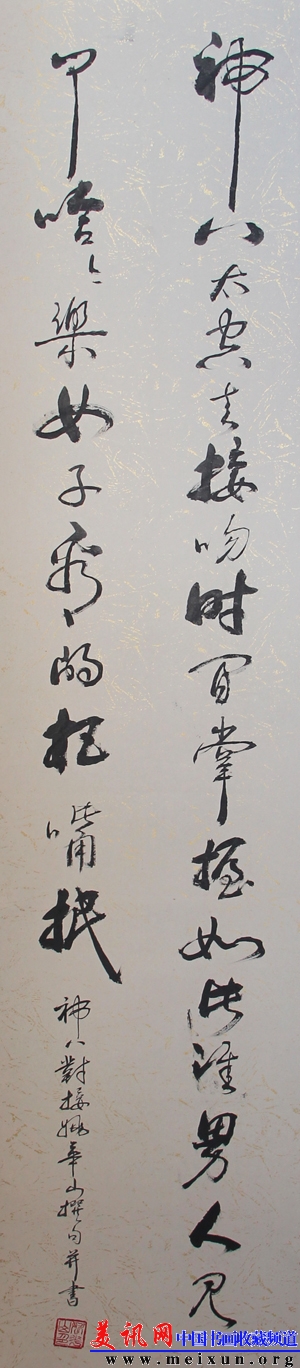 神八太空去接吻时间掌握如此准男人见
哈哈樂女子的把嘴抿
神八對接姚華山撰句并書
美讯网 中国书画收藏频道
www.meixun.org